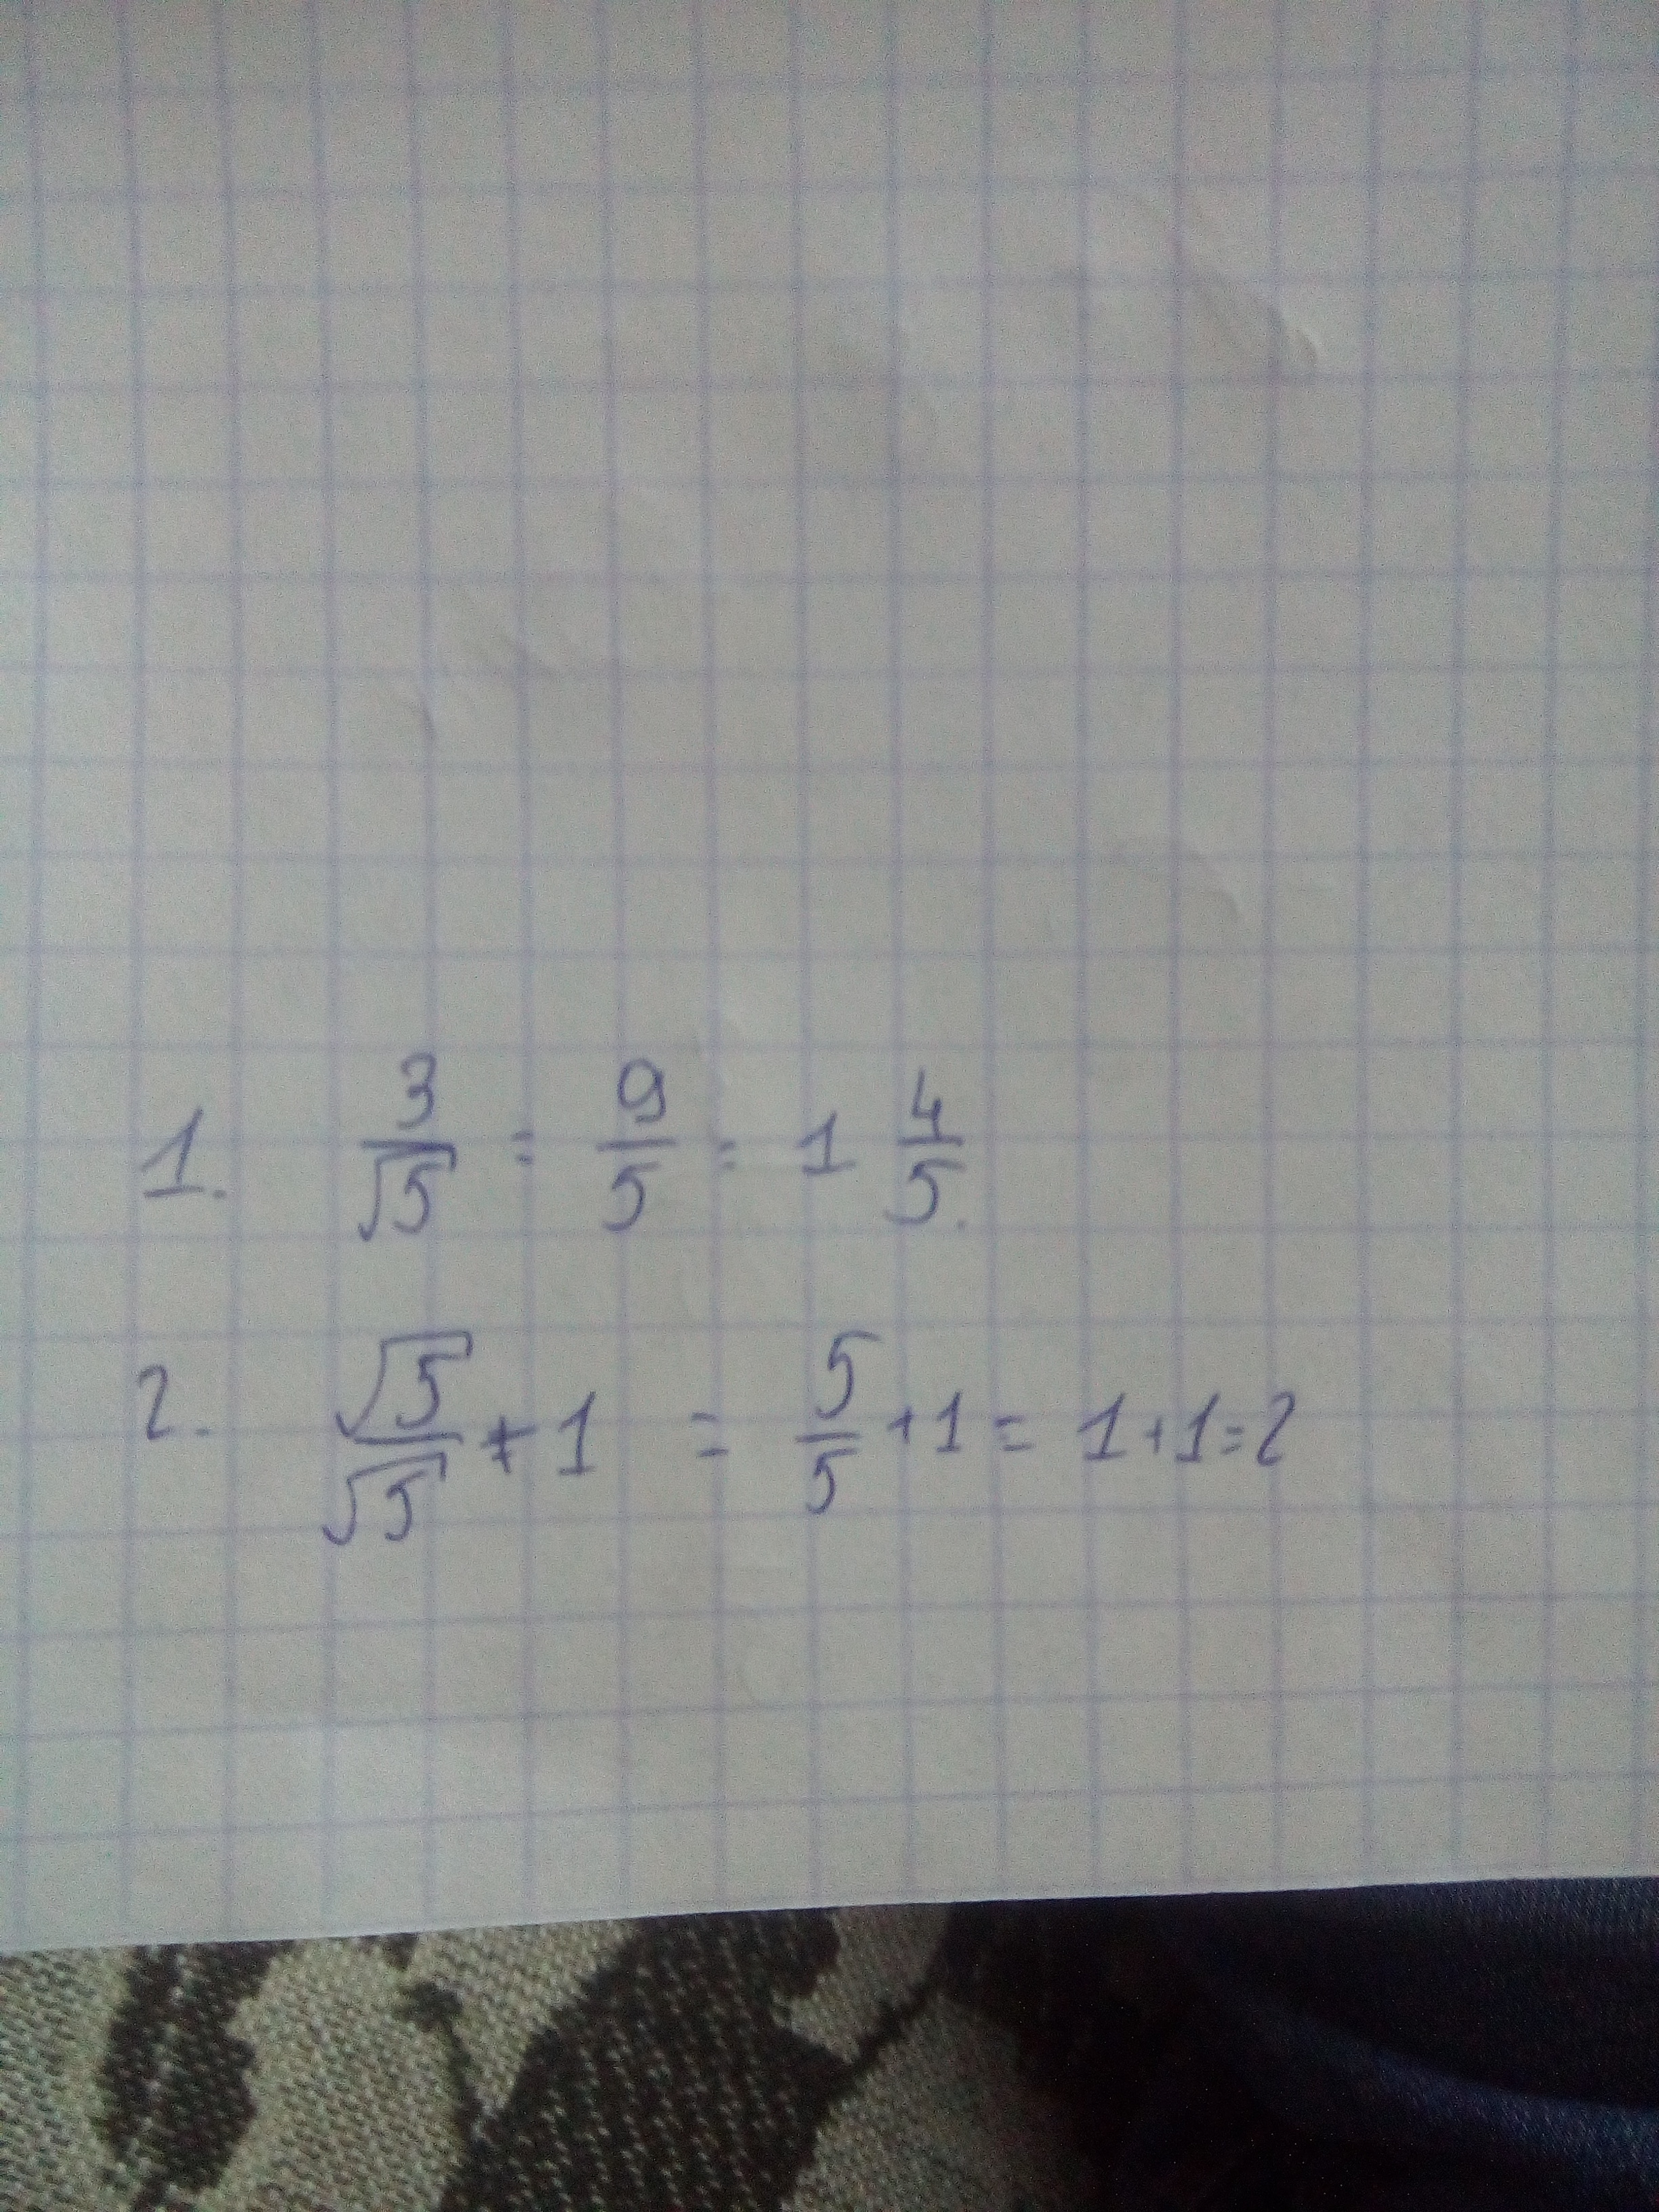 1. 3/√5 = 9/5 = 1 4/5.
2. √5/√5 + 1 = 5/5 + 1 = 1 + 1 = 2